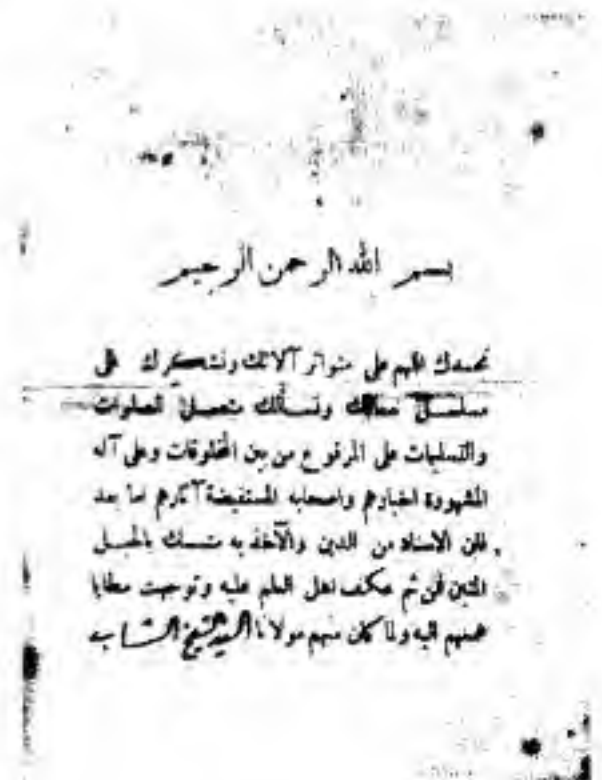 بسم الله الرحمن الرحيم
نحمدك اللهم على متواتر آلائك ونشكرك على
مسلسل ونسألك متصل الصلوات
والتسليمات على المرفوع من بين المخلوقات وعلى آله
المشهورة اخبارهم واصحابه المستفيضة آثارهم اما بعد
فان الاسناد من الدين والآخذ به متمسك بالحبل
المتين فمن ثم عكف اهل العلم عليه وتوجهت مطايا
هممهم اليه ولما كان منهم مولانا السيد الشيخ الشاب